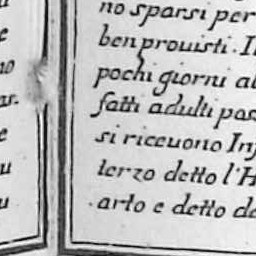 no sparsi per
ben prouisti. I
pochi giorni al
fatti adulti pos
si riceuono Inf
terzo detto l'H
arto e detto de